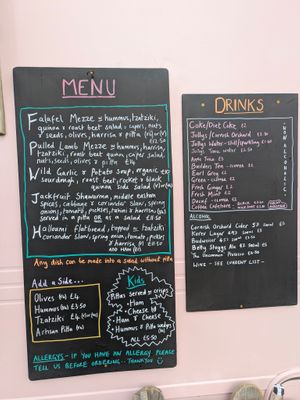 MENU
Falafel Mezze = hummus, tzatziki,
quinoa & roast beet salad, capers, nuts
& seeds, olives, harrisa & pitta
Pulled Lamb Mezze = hummus, harrisa,
tzatziki, roast beet quinoa,
nuts, seeds, olives & pitta
Wild Garlic & Potato Soup, organic
sourdough, roast beet, rocket & black
quinoa side salad
Jackfruit Shawarma, middle eastern
spices, cabbage & coriander slaw, spring
onions, tomato, pickles, raisins & harrisa
served in a pitta or as a salad £8.50
Halloumi Flatbread, topped w tzatziki
coriander slaw, spring onion, tomato, pickles
& harrisa
Any dish can be made into a salad without pitta
Add a Side...
Olives £4
Hummus £3.50
Tzatziki £4
Artisan Pitta
Kids
Pittas served w crisps
- Ham
- Cheese or
- Ham & Cheese
- Hummus & Pitta wedges
ALL £5.50
ALLERGYS - IF YOU HAVE AN ALLERGY PLEASE
TELL US BEFORE ORDERING... THANKYOU
DRINKS
Coke/Diet Coke £2
Jollys/Cornish Orchard £2.50
Jollys Water - still/sparkling £1.50
Earl Grey £2
Green - £2
Fresh Ginger £2
Fresh Mint £2
Decaf
Coffee Cafetiere
NON ALCOHOLIC
ALCOHOL
Cornish Orchard Cider
Korev Lager
Budweiser
Betty Stoggs Ale
WINE - SEE CURRENT LIST -